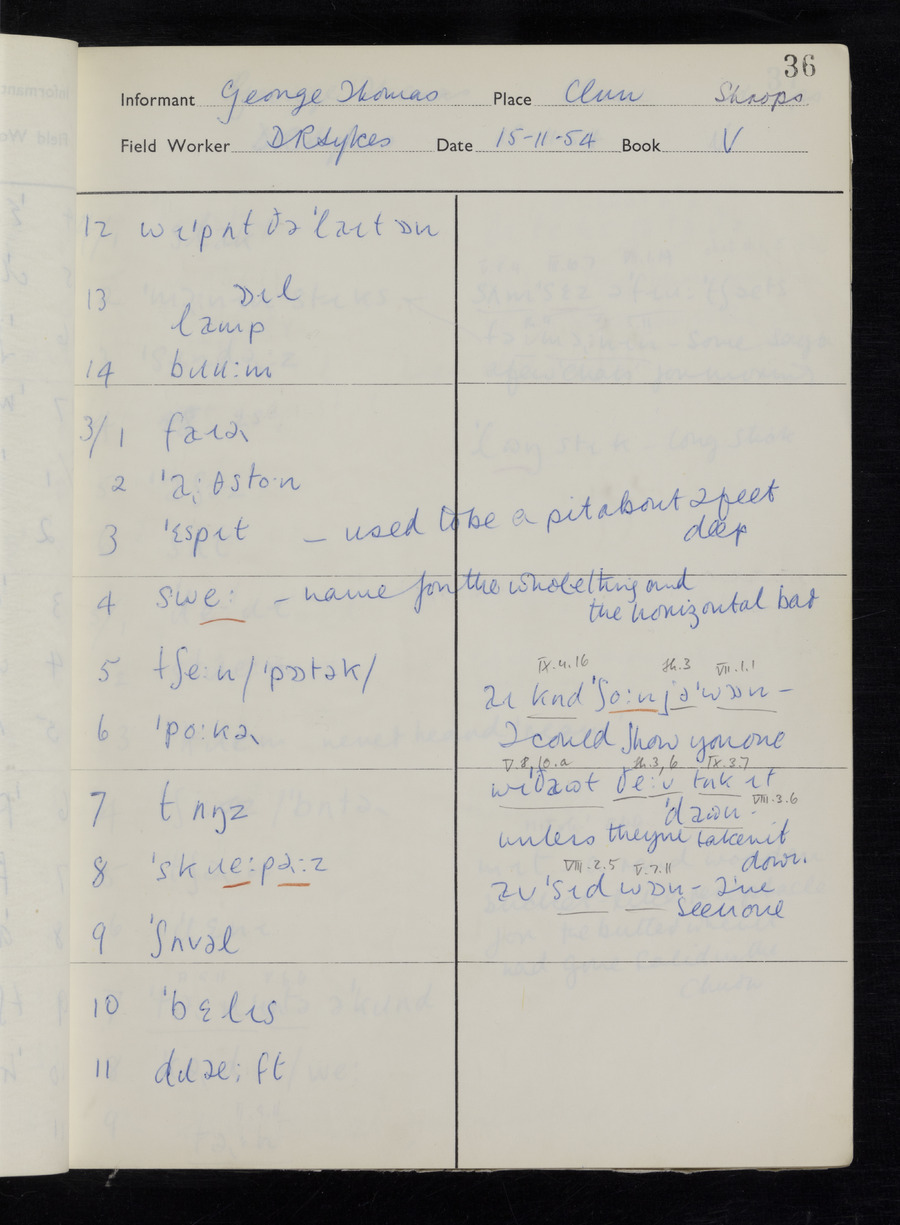 36
Informant George Thomas Place Clun Shrops.
Field Worker D R Sykes Date 15-11-54 Book V
12 wɪ'pʌt ðə'laɪt ɒn
13 ɒɪl
lamp
14 bɹuːm
3/1 faɪəɹ
2 'aːθstoːn
3 'ɛspɪt – used to be a pit about 2 feet
deep
4 sweː – name for the whole thing and
the horizontal bar
5 tʃeːn /'pɒtək/
6 'poːkəɹ
7 tʌŋz
8 'skɹeːpəːz
9 'ʃʌvəl
10 'bɛlɪs
11 dɹaːft
IX.4.16 th.3 VII.1.1
aɪ kʌd 'ʃoːu jə 'wɒn –
I could show you one
V.8,10.a th.3,6 IX.3.7
wɪðaʊt ðeːv tʊk ɪt
'daʊn. VIII.3.6
unless they've taken it
down.
VIII.2.5 V.7.11
aɪv 'sɪd wɒn – I've
seen one